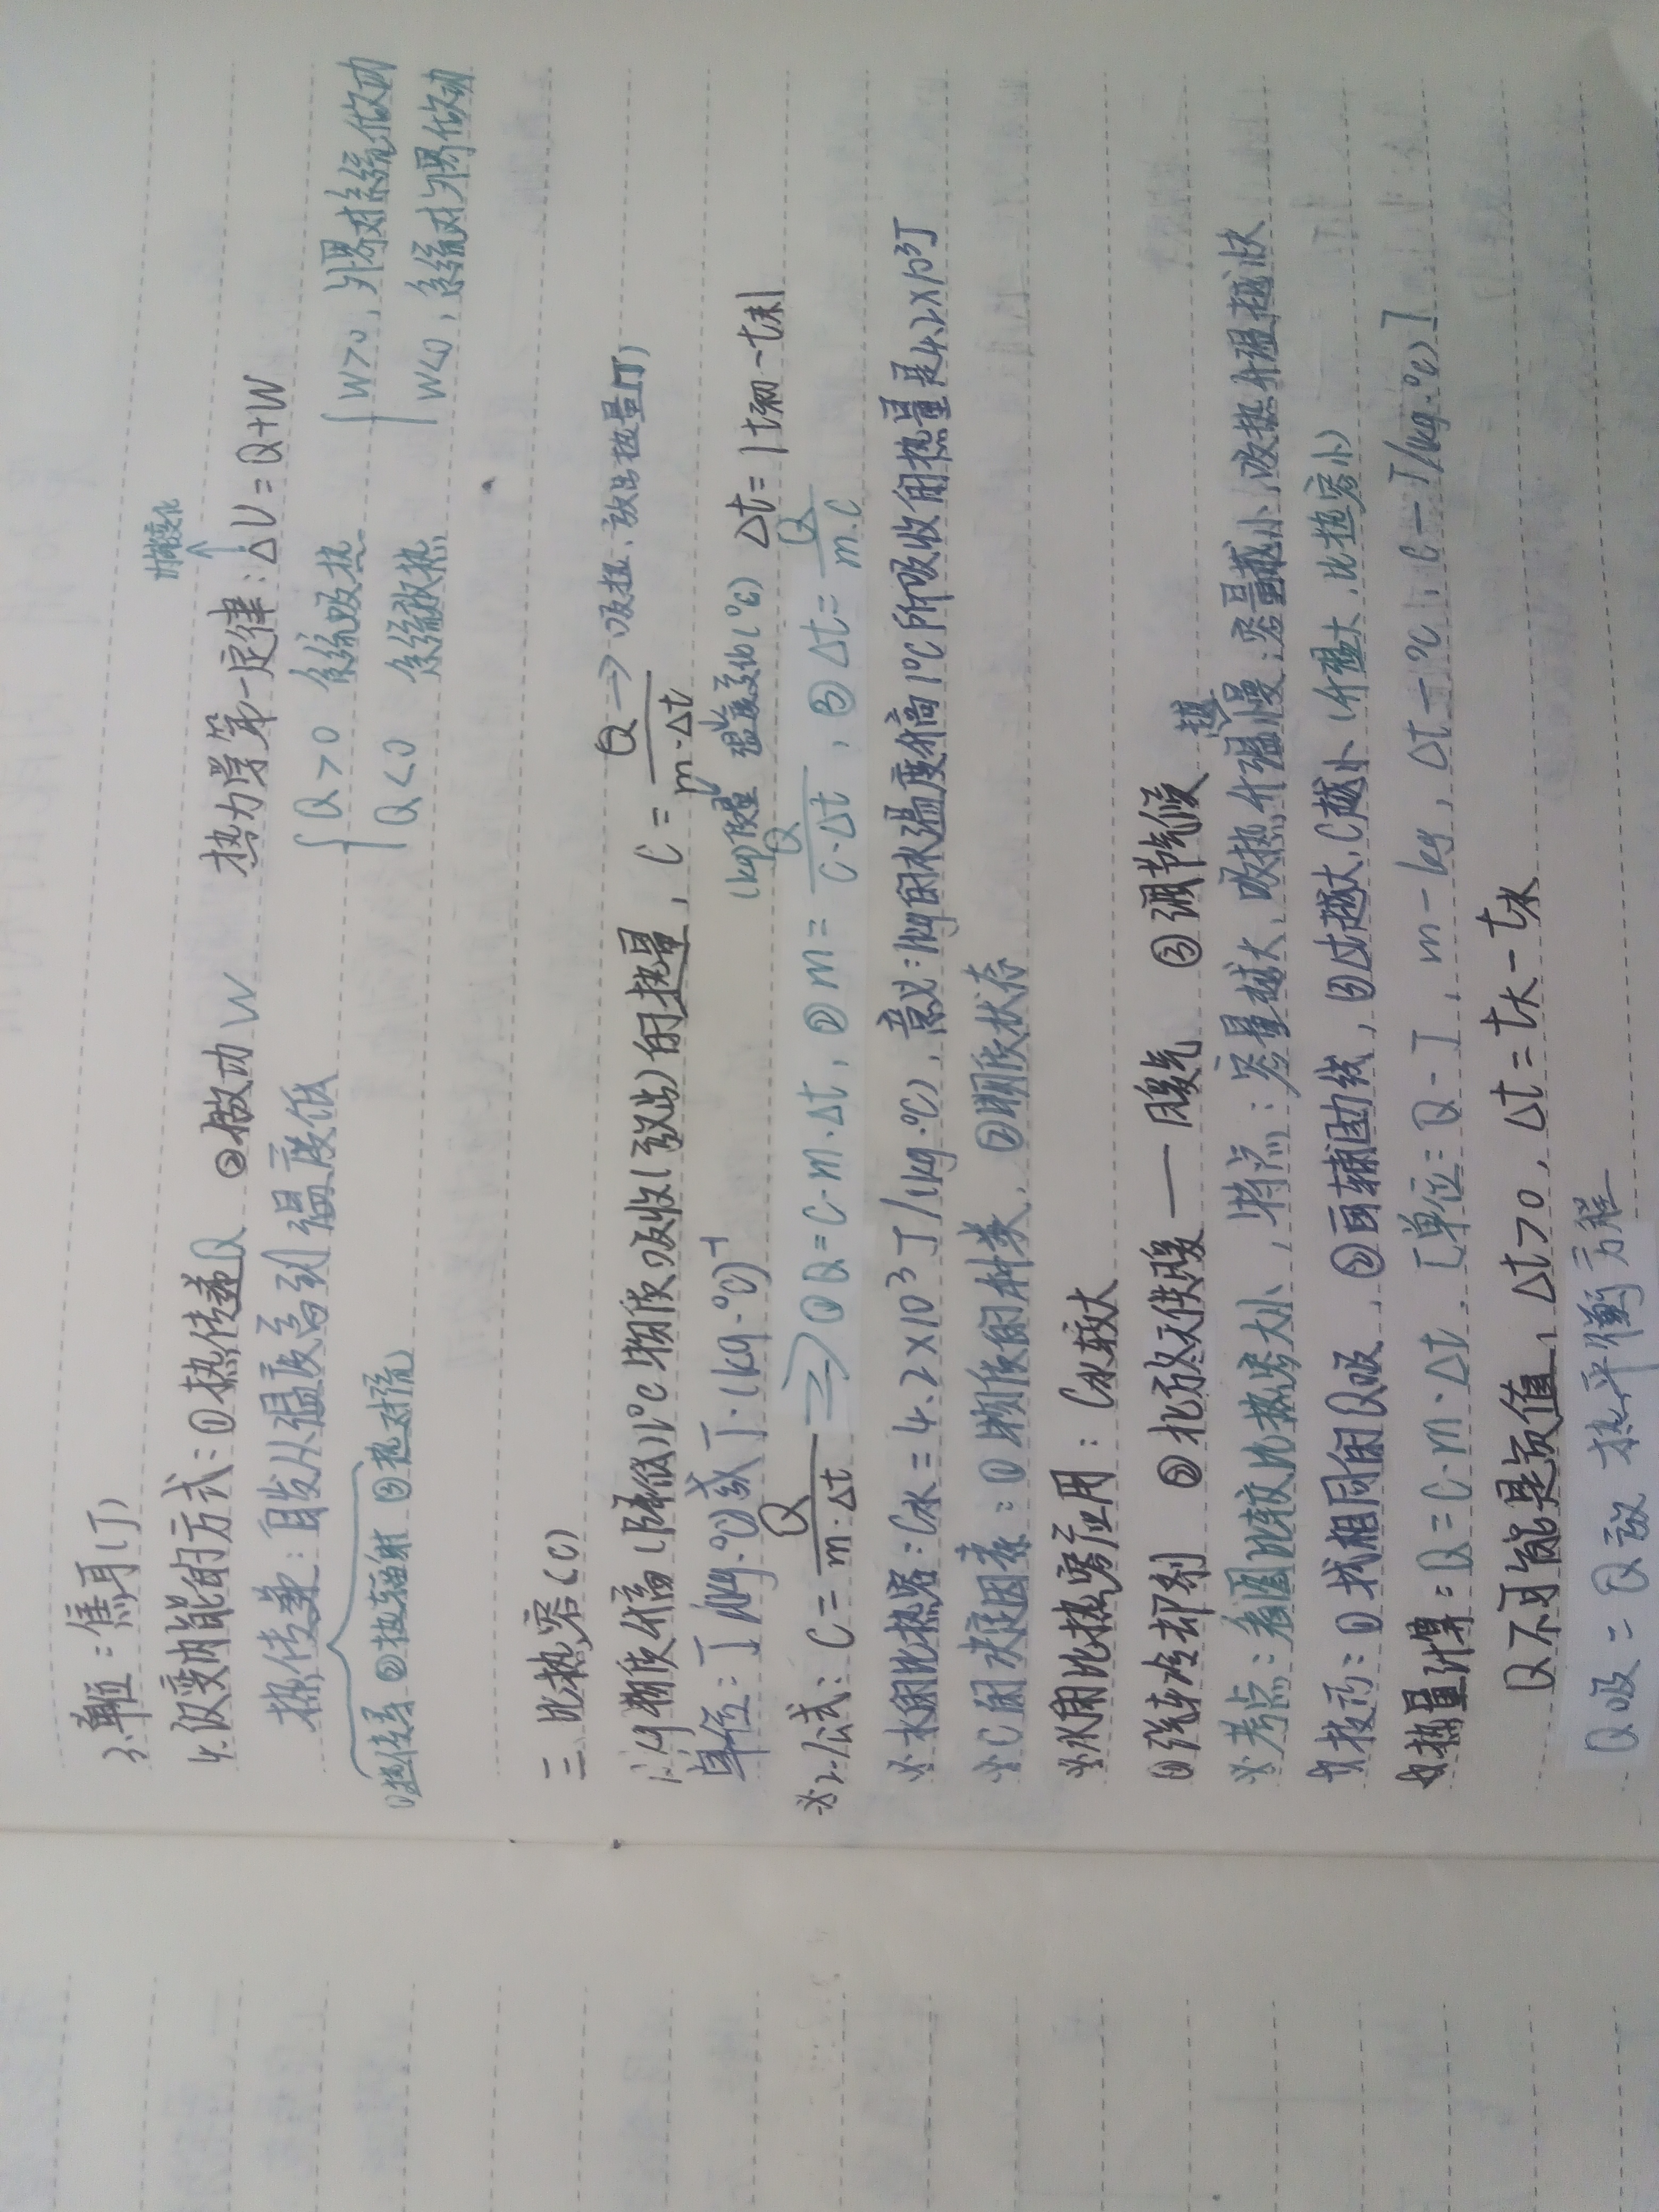 3.单位:焦耳(J)
内能变化
4.改变内能的方式:①热传递Q ②做功W 热力学第一定律:ΔU=Q+W
热传递:自发从温度高到温度低 Q>0 系统吸热 W>0,外界对系统做功
①热传导 ②热辐射 ③热对流 Q<0 系统放热 W<0,系统对外界做功
三、比热容(c)
1.1kg物质升高(降低)1℃物质吸收(放出)的热量,C=Q/m·Δt → 吸热、放出热量(J)
单位:J/(kg·℃)或J·(kg·℃)⁻¹ (kg)质量 温度变化(℃) Δt=|t初-t末|
※2.公式:C=Q/m·Δt ⇒ ①Q=C·m·Δt,②m=Q/C·Δt,③Δt=Q/m·C
※水的比热容:C水=4.2×10³J/(kg·℃),意义:1kg的水温度升高1℃所吸收的热量是4.2×10³J
※C的决定因素:①物质的种类、②物质状态
※水的比热容应用:C水较大
①汽车冷却剂 ②北方冬天供暖——暖气 ③调节气候
※考点:看图比较比热容大小,特点:容量越大,吸热升温越慢;容量越小,吸热升温越快
技巧:①找相同的Q吸,②画辅助线,③Δt越大,C越小(升温大,比热容小)
热量计算:Q=C·m·Δt [单位:Q-J,m-kg,Δt-℃,C-J/(kg·℃)]
Q不可能是负值,Δt>0,Δt=t大-t小
Q吸=Q放 热平衡方程